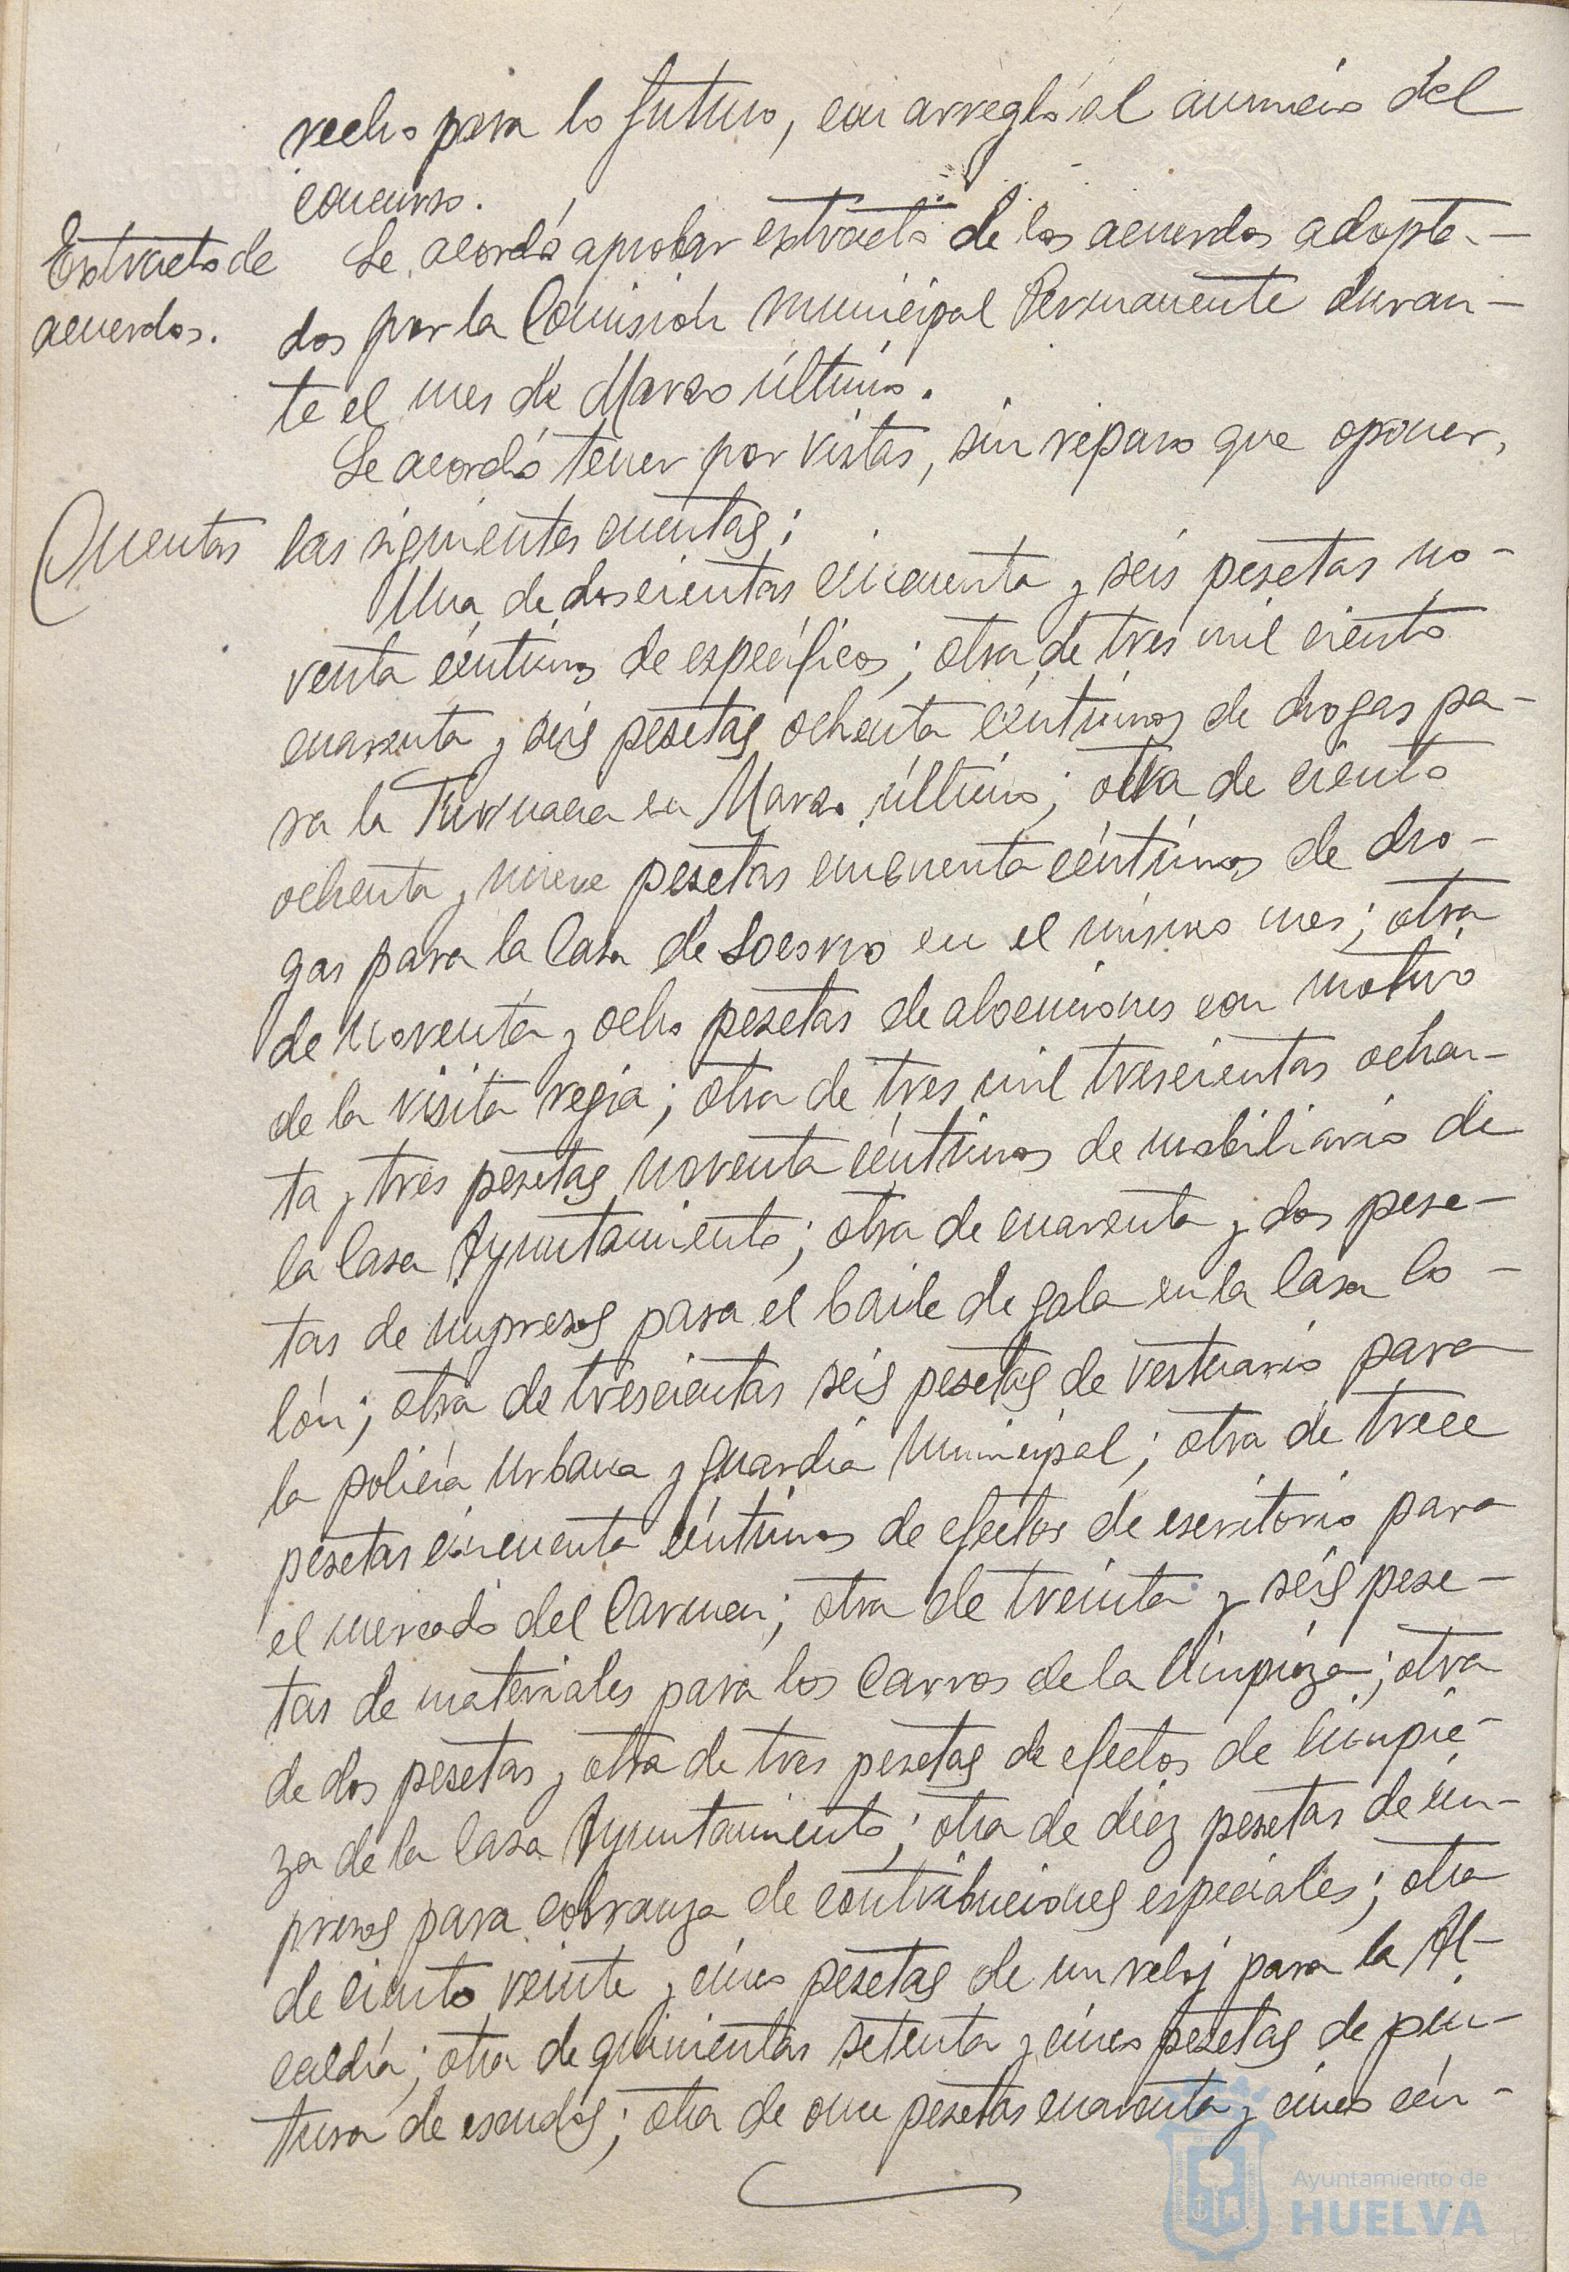 recho para lo futuro, con arreglo al anuncio del
concurso.
Extracto de
acuerdos.
Se acordó aprobar extracto de los acuerdos adopta-
dos por la Comisión municipal Permanente duran-
te el mes de Marzo último.
Se acordó tener por vistas, sin reparo que oponer,
Cuentas
las siguientes cuentas:
Una de doscientas cincuenta y seis pesetas no-
venta céntimos de específicos; otra de tres mil ciento
cuarenta y seis pesetas ochenta céntimos de drogas pa-
ra la Farmacia en Marzo último; otra de ciento
ochenta y nueve pesetas cincuenta céntimos de dro-
gas para la Casa de Socorro en el mismo mes; otra
de noventa y ocho pesetas de alocuciones con motivo
de la visita regia; otra de tres mil trescientas ochen-
ta y tres pesetas noventa céntimos de mobiliario de
la Casa Ayuntamiento; otra de cuarenta y dos pese-
tas de impresos para el baile de gala en la Casa Co-
lón; otra de trescientas seis pesetas de vestuario para
la policía urbana y guardia municipal; otra de trece
pesetas cincuenta céntimos de efectos de escritorio para
el mercado del Carmen; otra de treinta y seis pese-
tas de materiales para los carros de la limpieza; otra
de dos pesetas y otra de tres pesetas de efectos de limpie-
za de la Casa Ayuntamiento; otra de diez pesetas de im-
presos para cobranza de contribuciones especiales; otra
de ciento veinte y cinco pesetas de un reloj para la Al-
caldía; otra de quinientas setenta y cinco pesetas de pin-
tura de escudos; otra de once pesetas cuarenta y cinco cén-
Ayuntamiento de
HUELVA